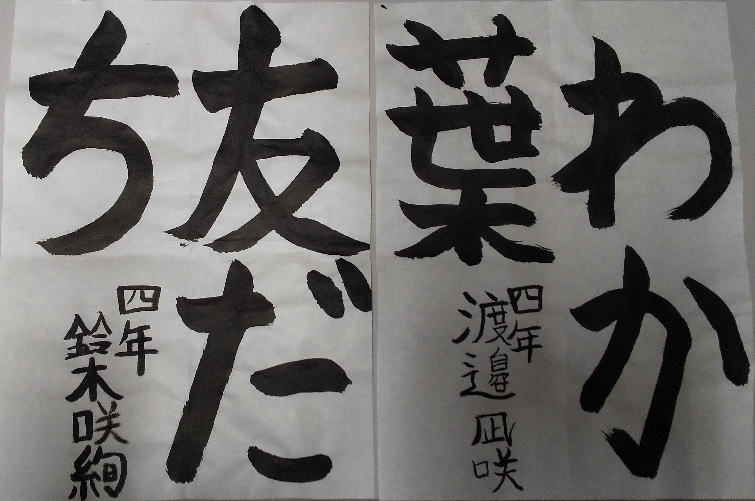 わか
葉
四年
渡邉凪咲
友だ
ち
四年
鈴木咲絢